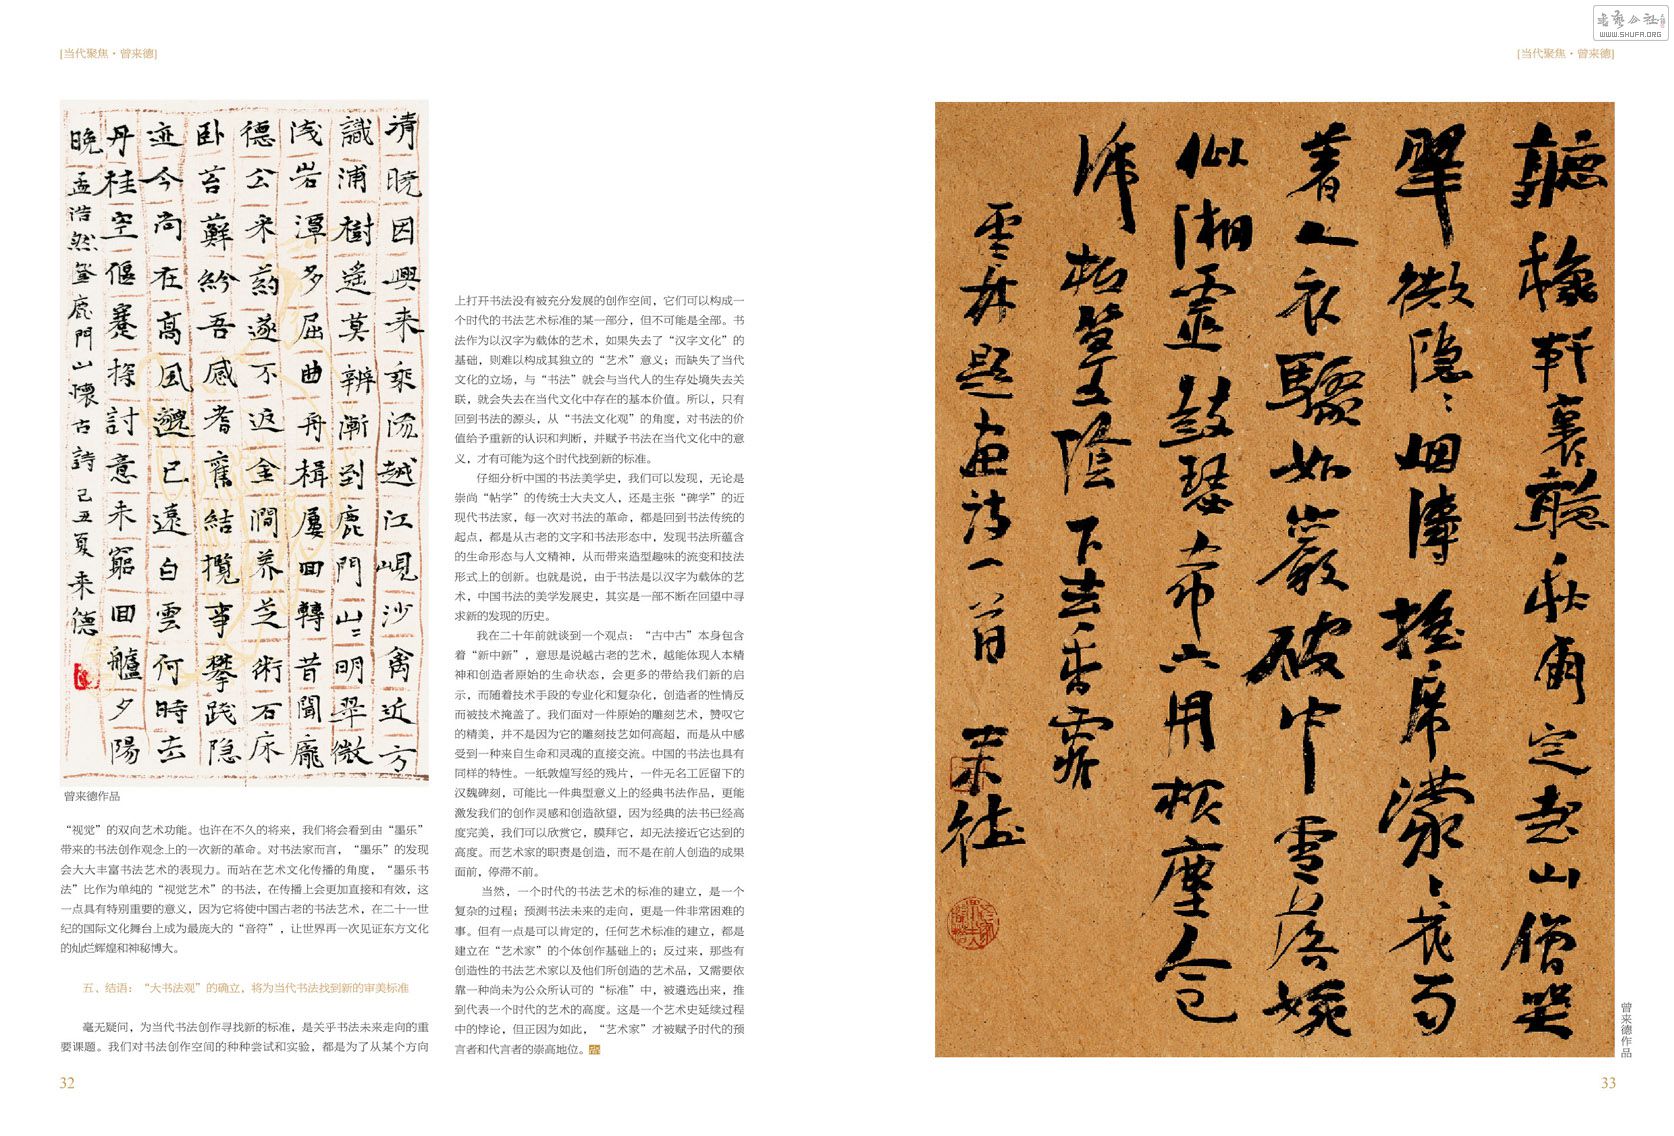 [当代聚焦·曾来德]
清曉因興来乘流越江峴沙禽近方
識浦樹遥莫辨漸到鹿門山〻明翠微
浅岩潭多屈曲舟楫屢回轉昔聞龐
德公采药遂不返金澗养芝術石床
卧苔蘚紛吾感耆舊結攬事攀践隐
迹今尚在高風邈已遠白雲何時去
丹桂空偃蹇探討意未窮回艫夕陽
晚 孟浩然登鹿門山懷古詩 己丑夏 来德
曾来德作品
“视觉”的双向艺术功能。也许在不久的将来，我们将会看到由“墨乐”
带来的书法创作观念上的一次新的革命。对书法家而言，“墨乐”的发现
会大大丰富书法艺术的表现力。而站在艺术文化传播的角度，“墨乐书
法”比作为单纯的“视觉艺术”的书法，在传播上会更加直接和有效，这
一点具有特别重要的意义，因为它将使中国古老的书法艺术，在二十一世
纪的国际文化舞台上成为最庞大的“音符”，让世界再一次见证东方文化
的灿烂辉煌和神秘博大。
五、结语：“大书法观”的确立，将为当代书法找到新的审美标准
毫无疑问，为当代书法创作寻找新的标准，是关乎书法未来走向的重
要课题。我们对书法创作空间的种种尝试和实验，都是为了从某个方向
上打开书法没有被充分发展的创作空间，它们可以构成一
个时代的书法艺术标准的某一部分，但不可能是全部。书
法作为以汉字为载体的艺术，如果失去了“汉字文化”的
基础，则难以构成其独立的“艺术”意义；而缺失了当代
文化的立场，与“书法”就会与当代人的生存处境失去关
联，就会失去在当代文化中存在的基本价值。所以，只有
回到书法的源头，从“书法文化观”的角度，对书法的价
值给予重新的认识和判断，并赋予书法在当代文化中的意
义，才有可能为这个时代找到新的标准。
仔细分析中国的书法美学史，我们可以发现，无论是
崇尚“帖学”的传统士大夫文人，还是主张“碑学”的近
现代书法家，每一次对书法的革命，都是回到书法传统的
起点，都是从古老的文字和书法形态中，发现书法所蕴含
的生命形态与人文精神，从而带来造型趣味的流变和技法
形式上的创新。也就是说，由于书法是以汉字为载体的艺
术，中国书法的美学发展史，其实是一部不断在回望中寻
求新的发现的历史。
我在二十年前就谈到一个观点：“古中古”本身包含
着“新中新”，意思是说越古老的艺术，越能体现人本精
神和创造者原始的生命状态，会更多的带给我们新的启
示，而随着技术手段的专业化和复杂化，创造者的性情反
而被技术掩盖了。我们面对一件原始的雕刻艺术，赞叹它
的精美，并不是因为它的雕刻技艺如何高超，而是从中感
受到一种来自生命和灵魂的直接交流。中国的书法也具有
同样的特性。一纸敦煌写经的残片，一件无名工匠留下的
汉魏碑刻，可能比一件典型意义上的经典书法作品，更能
激发我们的创作灵感和创造欲望，因为经典的法书已经高
度完美，我们可以欣赏它，膜拜它，却无法接近它达到的
高度。而艺术家的职责是创造，而不是在前人创造的成果
面前，停滞不前。
当然，一个时代的书法艺术的标准的建立，是一个
复杂的过程；预测书法未来的走向，更是一件非常困难的
事。但有一点是可以肯定的，任何艺术标准的建立，都是
建立在“艺术家”的个体创作基础上的；反过来，那些有
创造性的书法艺术家以及他们所创造的艺术品，又需要依
靠一种尚未为公众所认可的“标准”中，被遴选出来，推
到代表一个时代的艺术的高度。这是一个艺术史延续过程
中的悖论，但正因为如此，“艺术家”才被赋予时代的预
言者和代言者的崇高地位。
32
WWW.SHUFA.ORG
[当代聚焦·曾来德]
軒裏聽秋雨定起山僧
翠微隐〻烟濤席濛〻花
著人衣驟如巖破中雪落婉
似湘靈鼓瑟 六用根塵合
松篁交陰下去香霏
雲林題画詩一首 来德
曾来德作品
33